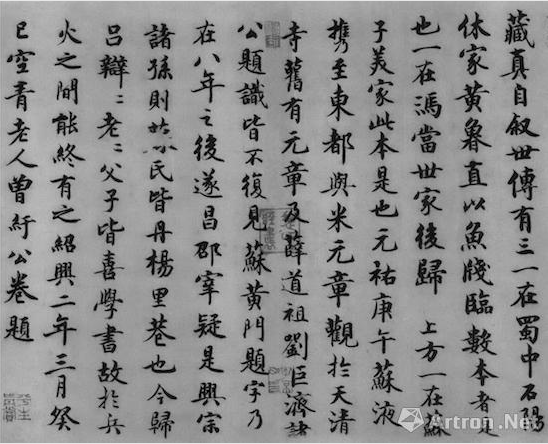 藏真自叙世傳有三一在蜀中石陽
休家黄魯直以魚牋臨數本者是
也一在馮當世家後歸 上方一在蘇
子美家此本是也元祐庚午蘇液
携至東都與米元章觀於天清
寺舊有元章及薛道祖劉巨濟諸
公題識皆不復見蘇黄門題字乃
在八年之後遂昌邵宰疑是興宗
諸孫則 氏皆丹楊里巷也今歸
吕辯=老=父子皆喜學書故於兵
火之間能終有之紹興二年三月癸
巳空青老人曾紆公卷題
雅昌艺术网
Artron.Net